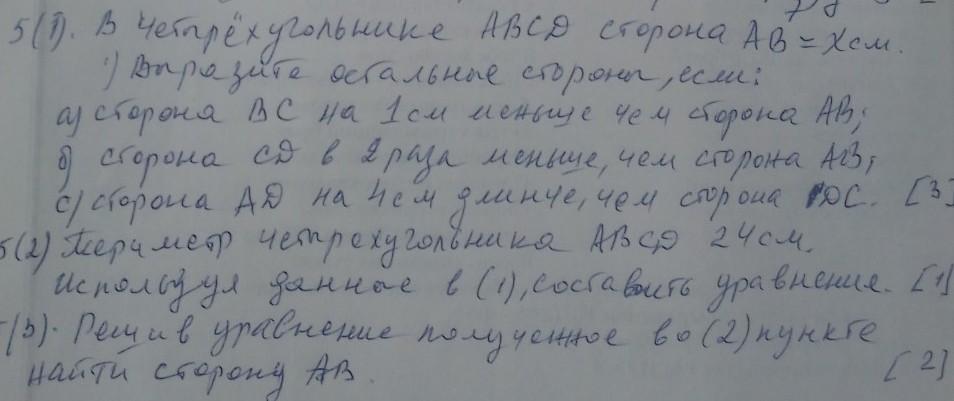 5(1). В четырёхугольнике ABCD сторона AB = x см.
1) Выразите остальные стороны, если:
а) сторона BC на 1 см меньше чем сторона AB;
б) сторона CD в 2 раза меньше, чем сторона AB;
с) сторона AD на 4 см длинче, чем сторона DC. [3]
5(2) Периметр четырехугольника ABCD 24 см.
Используя данные в (1), составить уравнение. [1]
(3). Решив уравнение полученное во (2) пункте
найти сторону AB. [2]